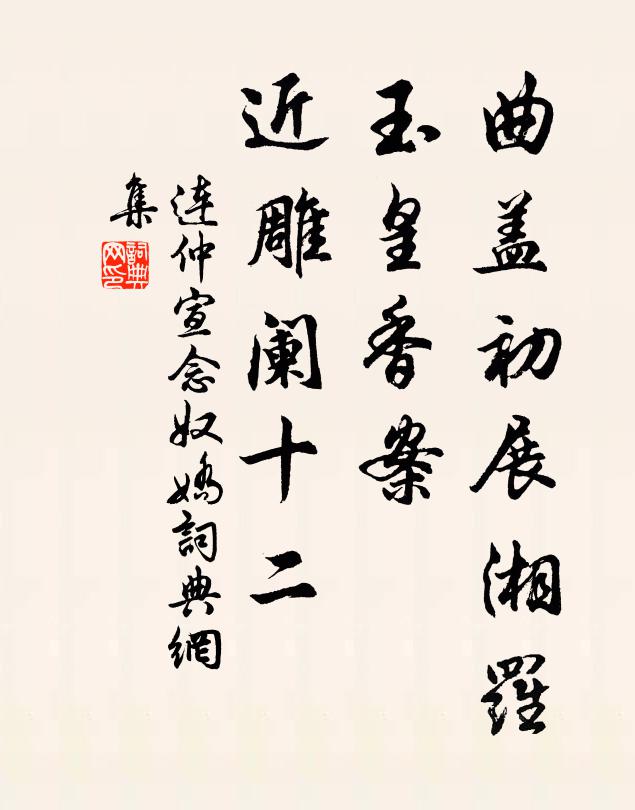 曲盖初展湘羅
玉皇香案
近雕阑十二
連仲宣念奴嬌詞典網
集
詞典網印